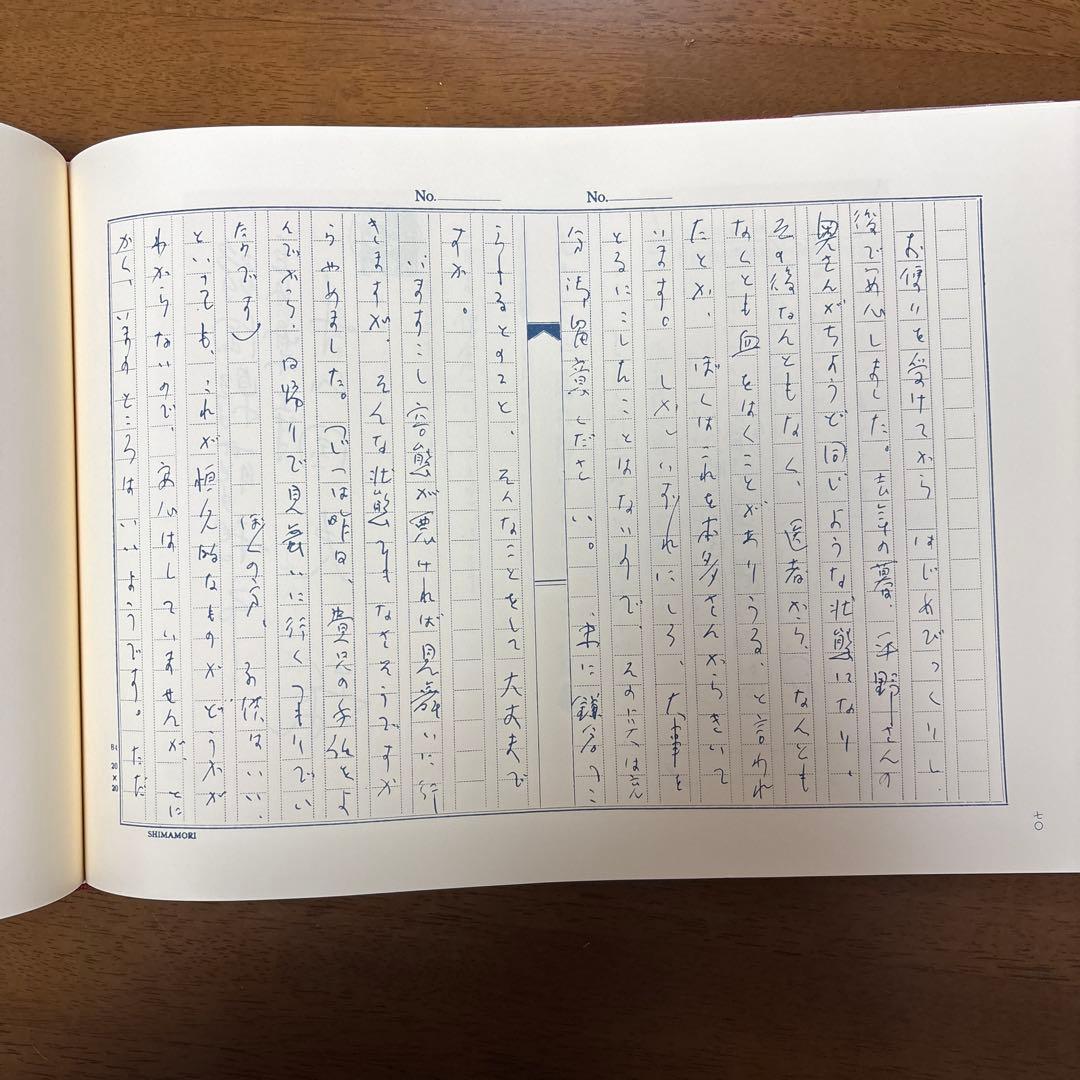 No.
No.
お便りを受けてから はじめびっくりし、
後で安心しました。去年の暮、平野さんの
奥さんがちようど同じような状態になり、
その後なんともなく、医者から、なんとも
なくとも血をはくことがありうる、と言われ
たとか、ぼくはこれを本多さんからきいて
います。しかしいずれにしろ、大事を
とるにこしたことはないので、その点は充
分御留意ください。 末に鎌倉へこ
られるとのこと、そんなことをして大丈夫で
すか。
います こし容態が悪ければ見舞いに行
きますが、そんな状態でもなさそうですか
らやめました。(じつは昨日、貴兄の手紙をよ
んでから、日帰りで見舞いに行くつもりでい
たのです) ぼくの方、子供はいい、
といっても、これが恒久的なものかどうかが
わからないので、安心はしていませんが、とに
かく、いまのところはいいようです。ただ
B4 20×20
SHIMAMORI
七〇